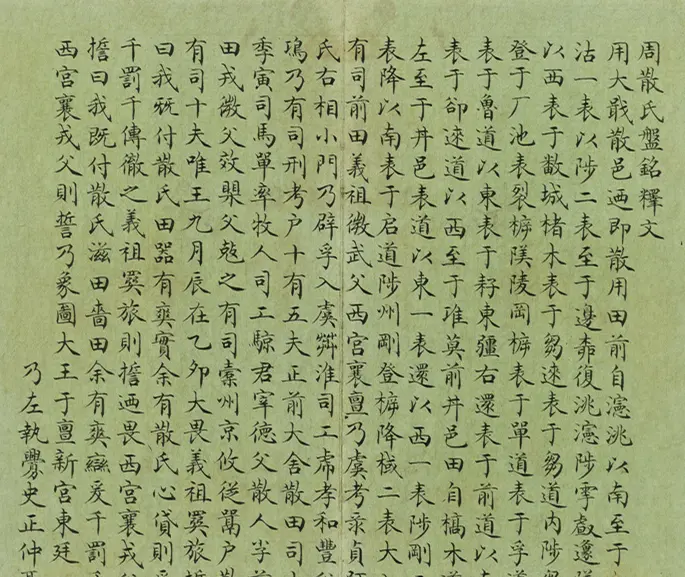 周散氏盤銘釋文
用大戢散邑迺即散用田前自瀗洮以南至于
沽一表以陟二表至于邊桒復洮瀗陟雩
以西表于敽城楮木表于芻逨表于芻道内陟芻
登于厂池表裂㯍陵岡㯍表于單道表于孚道
表于魯道以東表于籽東疆右還表于前道以
表于卻逨道以西至于琟莫前丼邑田自槁木道
左至于丼邑表道以東一表還以西一表陟剛
表降以南表于启道陟州剛登㯍降棫二表大
有司前田義祖微武父西宮襄亶乃虞考彔貞
氏右相小門乃辟孚入虞淮司工虎孝和豐父
乃有司刑考户十有五夫正前大舍散田司
季寅司馬單率牧人司工騡君宰德父散人
田戎微父效䙷父之有司橐州京攸從鬲户
有司十夫唯王九月辰在乙夘大畏義祖旅
曰我旣付散氏田器有爽實余有散氏心貸則
千罰千傳徹之義祖旅則㩴迺畏西宮襄戎父
㩴曰我既付散氏滋田嗇田余有爽䜌爰千罰千
西宮襄戎父則誓乃象圖大王于亶新宮東廷
乃左執史正仲